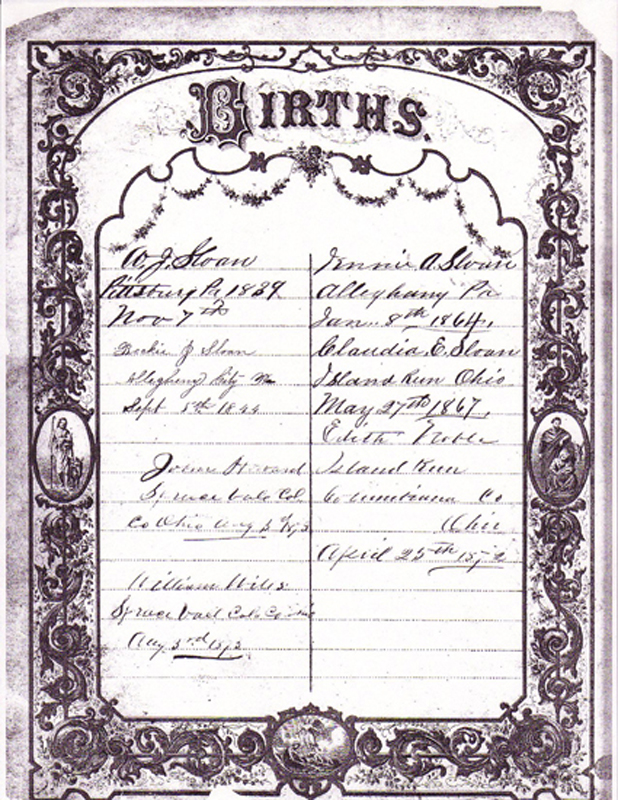 BIRTHS.
A. J. Sloan
Pittsburg Pa, 1839
Nov 7th
Beckie J Sloan
Allegheny City Pa
Sept 5th 1844
John Howard
Spruce Vale Col.
Co Ohio Aug 3d
William Wills
Spruce Vail Col. Co
Aug. 3rd 1873
Jennie A. Sloan
Alleghany Pa
Jan.. 8th 1864,
Claudia. E. Sloan
Island Run Ohio
May 27th 1867,
Edith Noble
Island Run
Columbiana Co
Ohio
April 25th